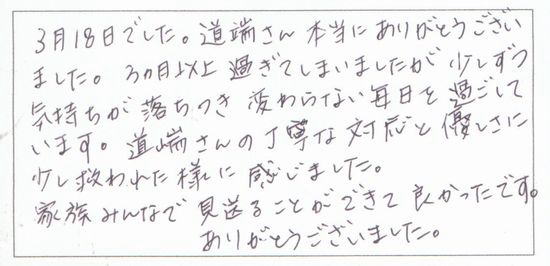 3月18日でした。道端さん 本当にありがとうござい
ました。3ヵ月以上 過ぎてしまいましたが 少しずつ
気持ちが 落ちつき 変わらない毎日を 過ごして
います。道端さんの丁寧な対応と優しさに
少し救われた様に 感じました。
家族みんなで 見送ることができて 良かったです。
ありがとうございました。